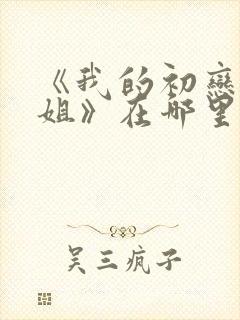 《我的初恋
姐》在哪里
吴三疯子